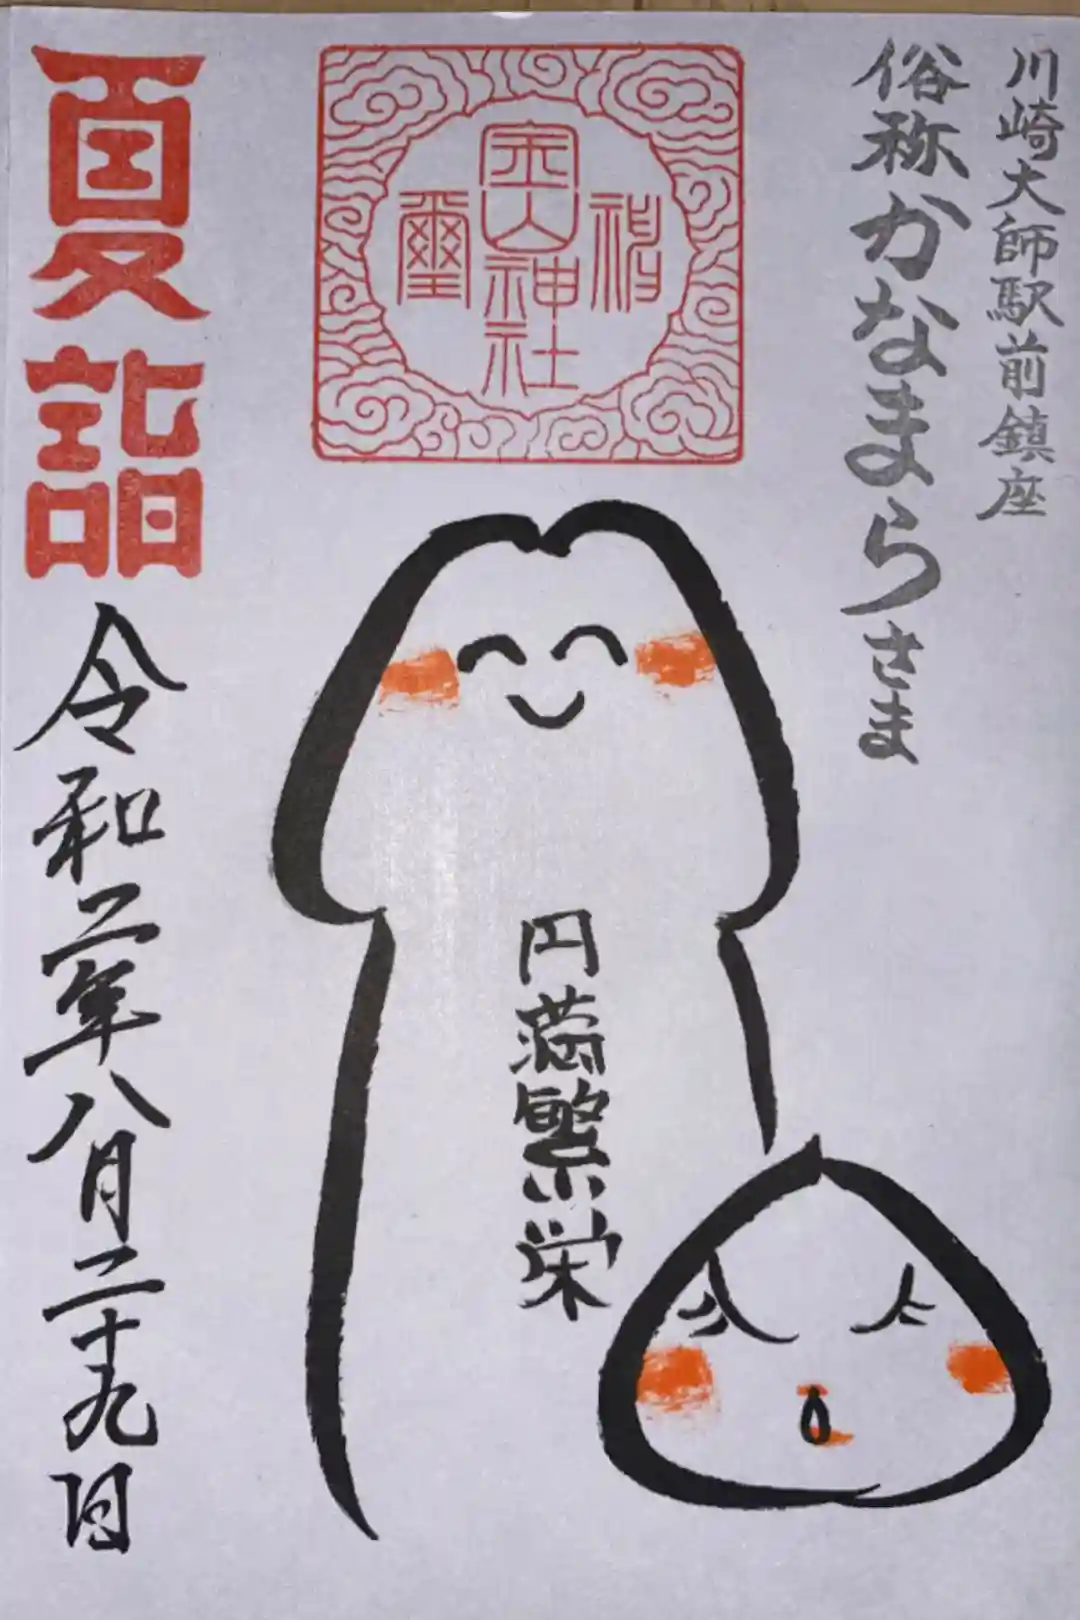 川崎大師駅前鎮座
俗称かなまらさま
金山神社
神璽
円満繁栄
夏詣
令和二年八月二十九日